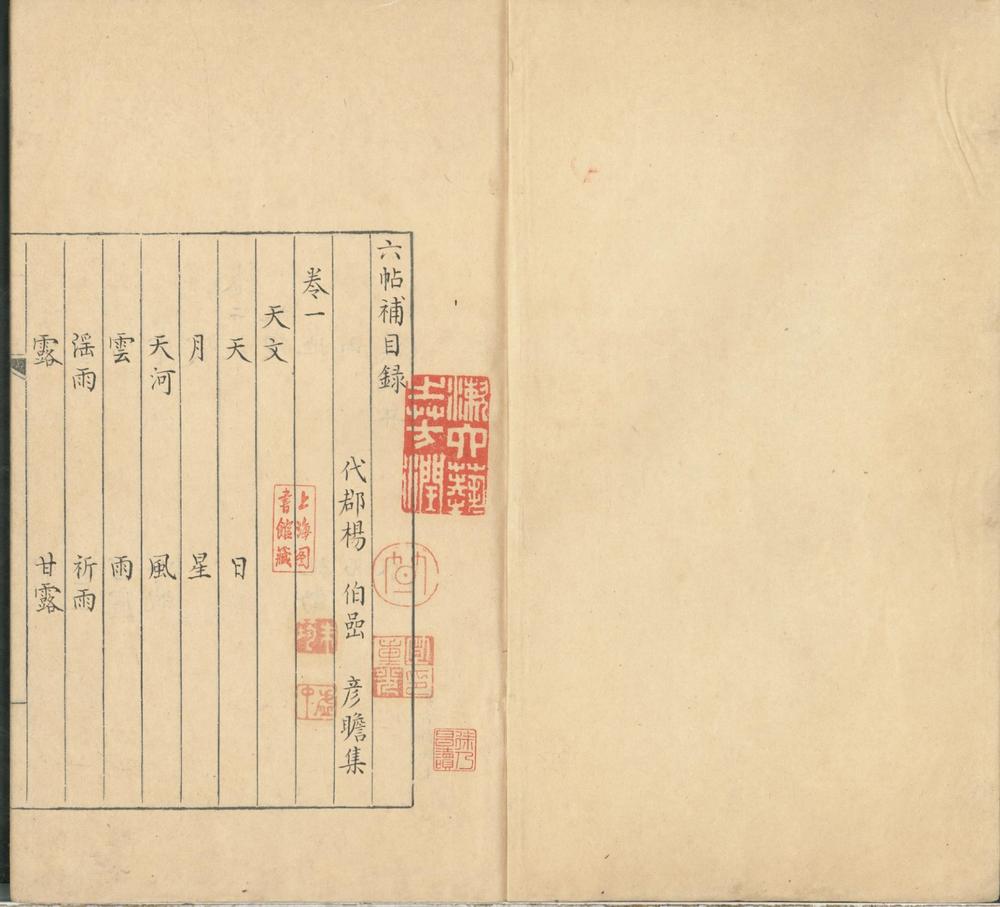 六帖補目録
代郡楊 伯嵒 彦瞻集
卷一
天文
天 日
月 星
天河 風
雲 雨
滛雨 祈雨
露 甘露
漱六藝
之芳潤
上海图
書館藏